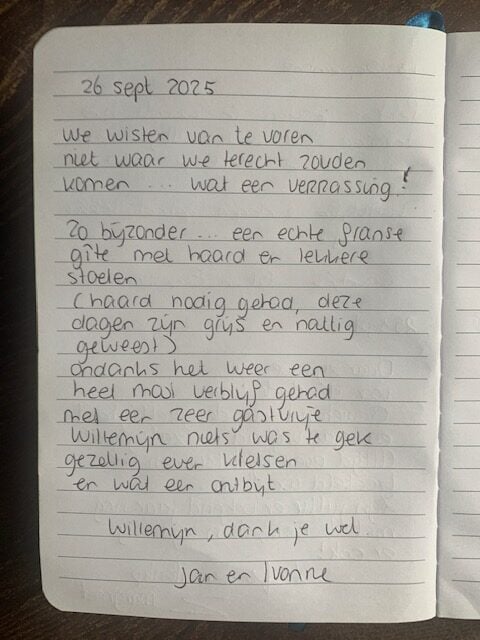 26 sept 2025
we wisten van te voren
niet waar we terecht zouden
komen ... wat een verrassing!
Zo bijzonder ... een echte franse
gîte met haard en lekkere
stoelen
(haard nodig gehad, deze
dagen zijn grijs en nattig
geweest)
ondanks het weer een
heel mooi verblijf gehad
met een zeer gastvrije
Willemijn niets was te gek
gezellig even kletsen
en wat een ontbijt
Willemijn, dank je wel.
Jan en Ivonne